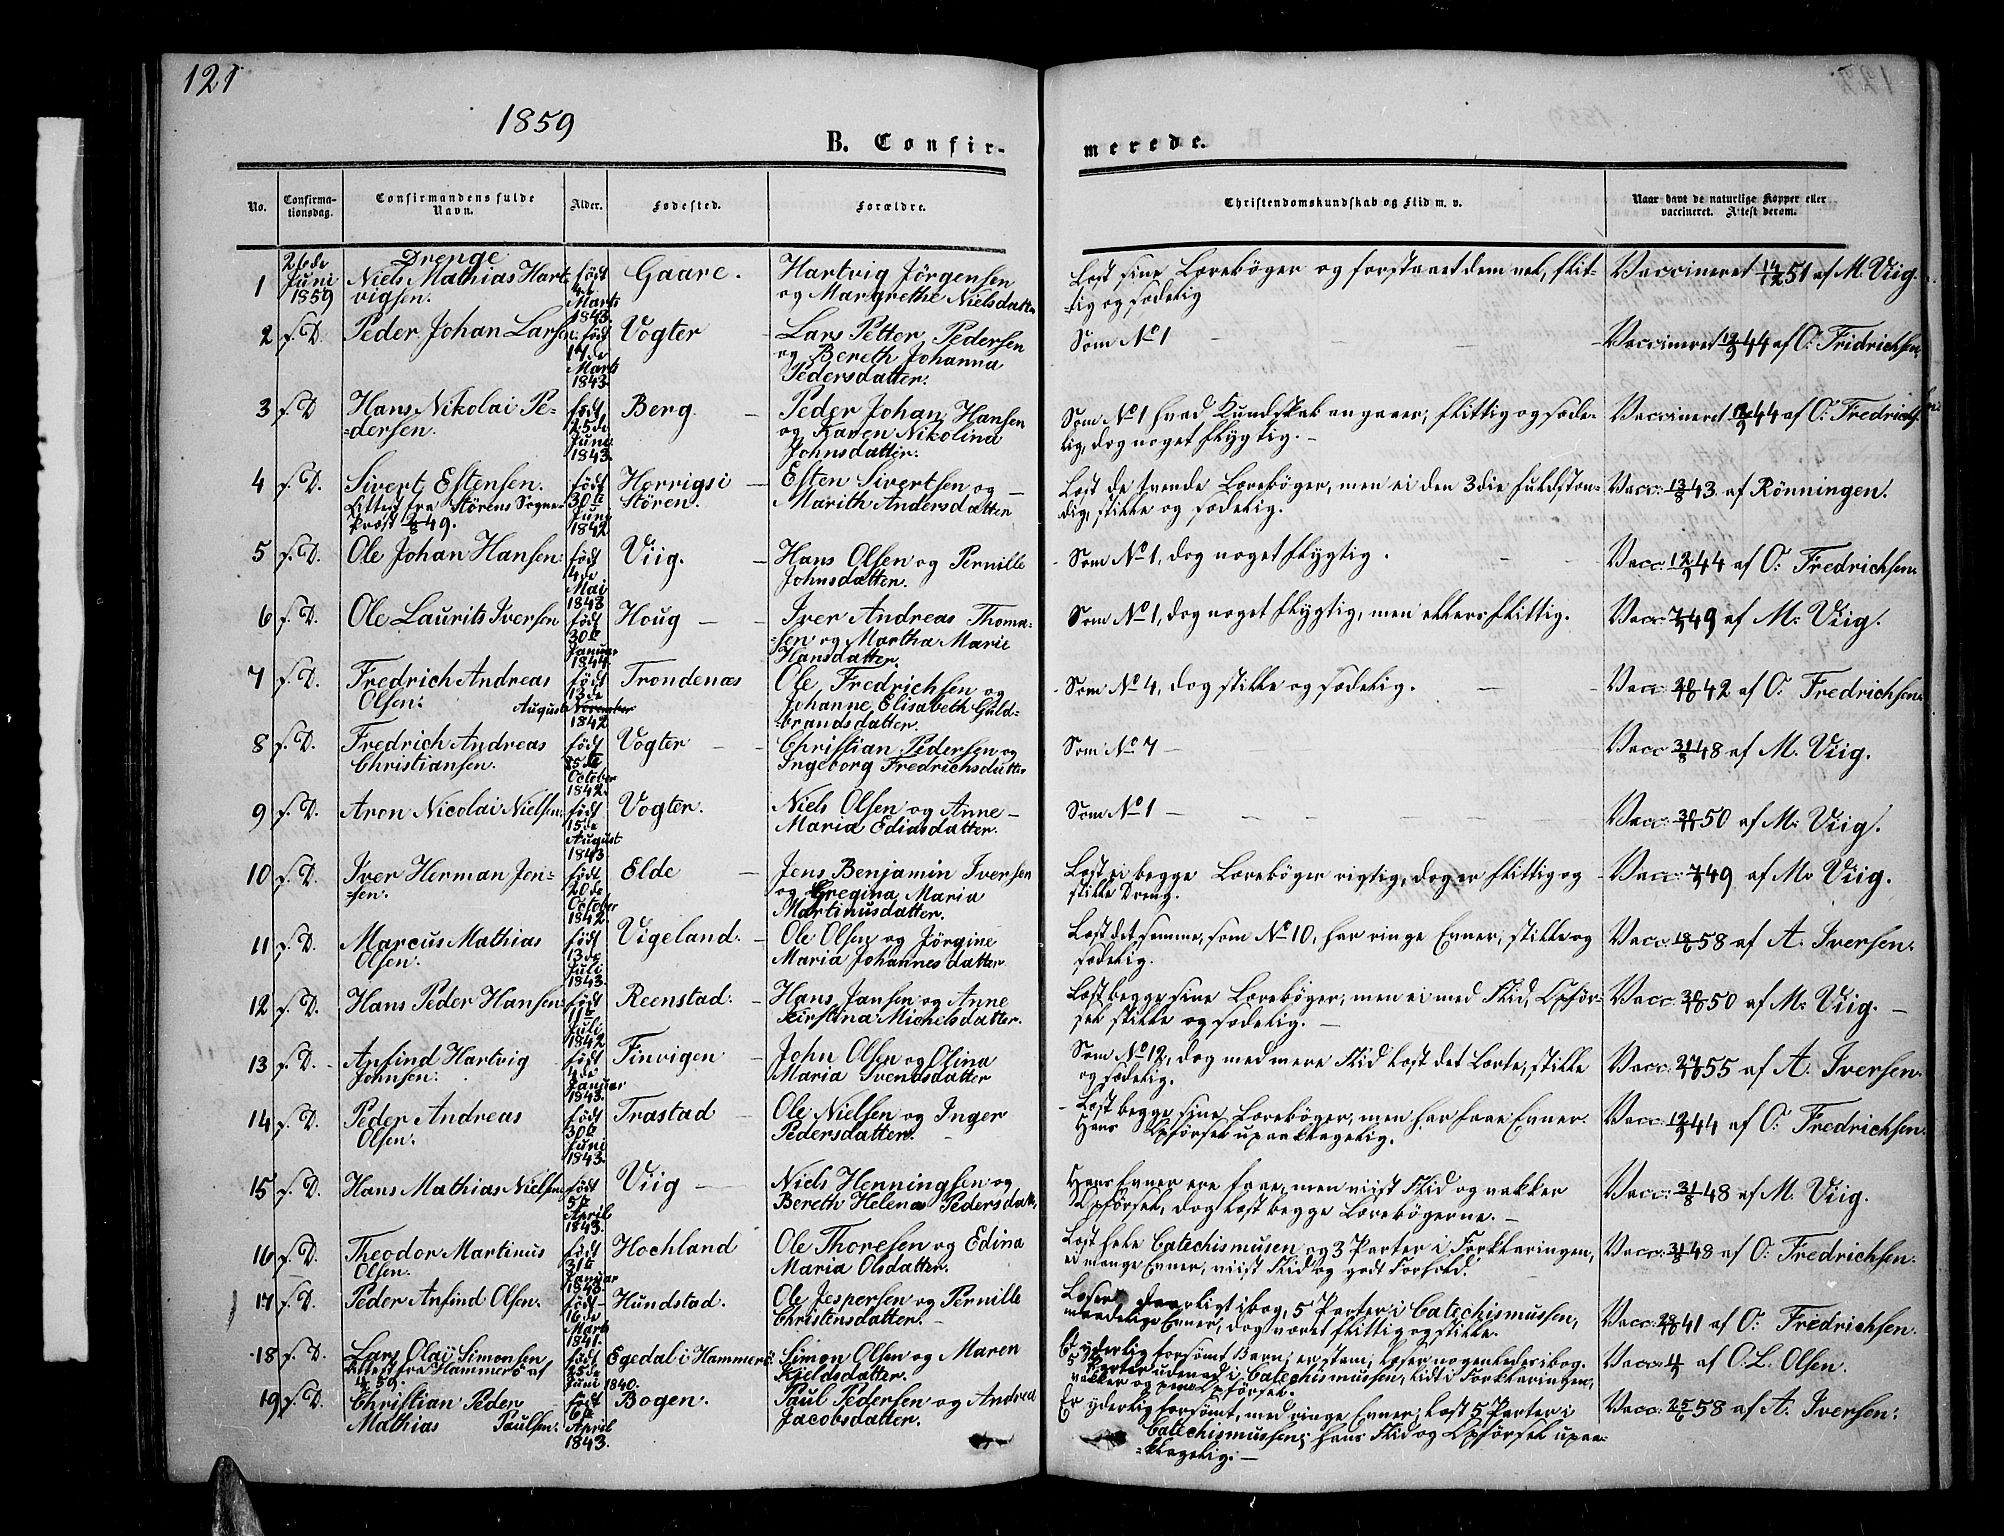 121
1859
B. Confir-
merede.
No.
Confirma-
tionsdag.
Confirmandens fulde
Navn.
Alder.
Fødested.
Forældre.
Christendomskundskab og Flid m. v.
Naar havt de naturlige Kopper eller
vaccineret. Attest derom.
Drenge
1 26de Juni 1859 Niels Mathias Hart- født Gaare. Hartvig Jörgensen Læst sine Lærebøger og forstaaet dem vel, flit- Vaccineret 14/12 51 af M. Viig.
vigsen. Marts 1843. og Margrethe Nielsdatter tig og sædelig
2 f. D. Peder Johan Larsen: født Vogter - Lars Petter Pedersen Som No 1 Vaccineret 12/9 44 af O: Fridrichsen
17de Marts 1843. og Bereth Johanna
Pedersdatter.
3 f. D Hans Nikolai Pe- født Berg. - Peder Johan Hansen Som No 1 hvad Kundskab angaaer; flittig og sæde- Vaccineret 12/9 44 af O: Fredrichsen
-dersen. 25de Juni 1843. og Karen Nikolina lig, dog noget flygtig. -
Johnsdatter.
4 f. D. Sivert Estensen. født Horrigsi - Esten Sivertsen og - Læst de tvende Lærebøger, men ei den 3die fuldstæn- Vacc: 13/8 43 af Rönningen.
fra Störens Sogne- 30te Juni Stören. Marith Andersdatter dig, stille og sædelig.
prest 2/8 49. 1842
5 f. D. Ole Johan Hansen: født Viig. - Hans Olsen og Pernille Som No 1, dog noget flygtig. Vacc: 12/9 44 af O: Fredrichsen
4de Mai 1843 Johnsdatter.
6 f. D. Ole Laurits Iversen født Houg - Iver Andreas Thoma- Som No 1, dog noget flygtig, men ellers flittig. Vacc: 7/7 49 af M. Viig.
30te Januar 1844. -sen og Martha Marie
Hansdatter.
7 f. D. Fredrich Andreas født Trondenæs Ole Fredrichsen og Som No 4, dog stille og sædelig. Vacc: 42 af O: Fredrichsen
Olsen: 13de August November 1842 Johanne Elisabeth Guld-
-brandsdatter.
8 f. D. Fredrich Andreas født Vogter - Christian Pedersen og Som No 7 - Vacc 31/8 48 af M. Viig.
Christiansen. 25de October 1842. Ingeborg Fredrichsdatter
9 f. D. Aron Nicolai Nielsen: født Vogter. Niels Olsen og Anne - Som No 1 - Vacc: 50 af M: Viig.
15de August 1843. Maria Ediasdatter.
10 f. D. Iver Herman Jen- født Elde - Jens Benjamin Iversen Læst ei begge Lærebøger rigtig, dog er flittig og Vacc: 7/7 49 af M. Viig.
-sen. 20de October 1842. og Gregina Maria stille Dreng.
Martinusdatter.
11 f. D. Marcus Mathias født Vigeland. - Ole Olsen og Jörgine Læst det samme, som No 10, har ringe Evner, stille og Vacc: 58 af A. Iversen.
Olsen. 13de Juli 1843. Maria Johannesdatter sædelig.
12 f. D. Hans Peder Hansen: født Reenstad. - Hans Jansen og Anne Læst begge sine Lærebøger, men ei med Flid, Opför- Vacc: 50 af M: Viig. -
11te Juli 1842 Kirstina Michelsdatter. sel stille og sædelig. -
13 f. D. - Anfind Hartvig født Finvigen - John Olsen og Olina Som No 12, dog med mere Flid læst det Lærte, stille Vacc: 55 af A. Iversen.
Johnsen. 4de Januar 1843. Maria Svendsdatter og sædelig.
14 f. D. Peder Andreas født Trastad - Ole Nielsen og Inger Læst begge sine Lærebøger, men har faae Evner. Vacc: 12/9 44 af O: Fredrichsen.
Olsen. 30te Juni 1843. Pedersdatter. Hans Opförsel upaaklagelig.
15 f. D. Hans Mathias Nielsen født Viig - Niels Henningsen og Hans Evner ere faae, men viist Flid og vakker Vacc: 31/8 48 af M. Viig.
5te April 1843. Bereth Helena Pedersdatt. Opförsel, dog læst begge Lærebøgerne. -
16 f. D. Theodor Martinus født Hochland Ole Thoresen og Edina Læst hele Catechismusen og 3 Parter i Forklaringen, Vacc: 31/8 48 af O: Fredrichsen.
Olsen. 31te Januar 1843. Maria Olsdatter. ei mange Evner, viist Flid og godt Forhold.
17 f. D. Peder Anfind Olsen. født Hundstad. Ole Jespersen og Pernille Læser daarligt i bog, 5 Parter i Catechismussen, Vacc: 41 af O: Fredrichsen.
16de Marts 1841. Christensdatter. - maadelige Evner, dog været flittig og stille.
18 f. D. Lars Olaÿ Simonsen født Egedal i Hammerö Simon Olsen og Maren Et yderlig forsömt Barn; er stam, læser nogenledes i bog. Vacc: af O. L. Olsen.
fra Hammerö af 25de Juni 1840. Kjeldsdatter. 5 Parter udenad i Catechismussen, lidt i Forklaringen,
59. vakker og pen Opförsel.
19 f. D. Christian Peder født Bogen. Paul Pedersen og Andrea Er yderlig forsömt, med ringe Evner; læst 5 Parter i Vacc: 58 af A. Iversen.
Mathias Paulsen: 6te April 1843. Jacobsdatter. Catechismussen; hans Flid og Opförsel upaa-
-klagelig. -